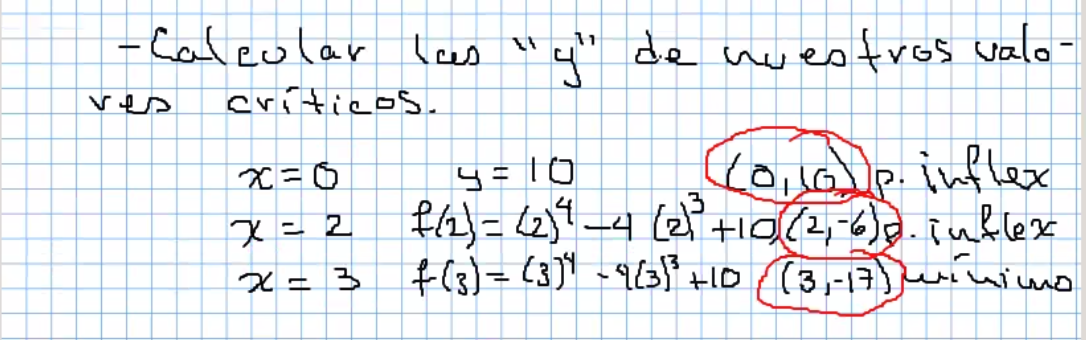 -Calcular las "y" de nuestros valo-
res críticos.
x=0 y=10 (0,10) p. inflex
x=2 f(2)=(2)⁴-4(2)³+10 (2,-6) p. inflex
x=3 f(3)=(3)⁴-4(3)³+10 (3,-17) mínimo